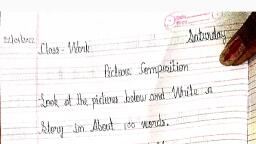 Saturday
Class-Work
Picture Composition
Look at the pictures below and Write a
Story in About 100 words.